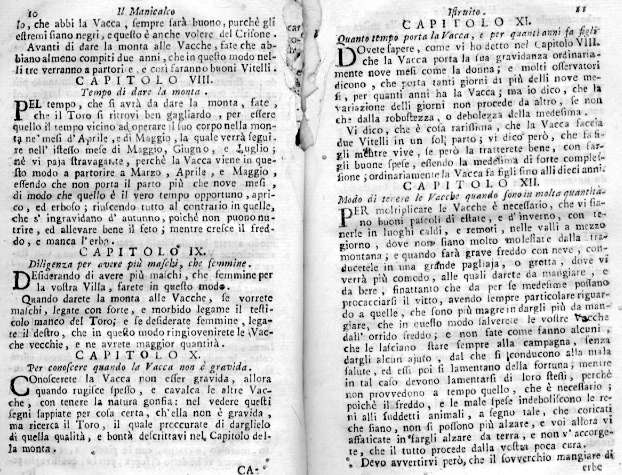 10 Il Manicalco
lo, che abbi la Vacca, sempre sarà buono, purchè gli
estremi siano negri, e questo è anche volere del Crisone.
Avanti di dare la monta alle Vacche, fate che ab-
biano almeno compiti due anni, che in questo modo nel-
li tre verranno a partori e, e così saranno buoni Vitelli.
CAPITOLO VIII.
Tempo di dare la monta.
PEL tempo, che si avrà da dare la monta, fate,
che il Toro si ritrovi ben gagliardo, per essere
quello il tempo vicino ad operare il suo corpo nella mon-
ta ne' mesi d'Aprile, e di Maggio, la quale verrà segui-
re nell' istesso mese di Maggio, Giugno, e Luglio;
nè vi paja stravagante, perchè la Vacca viene in que-
sto modo a partorire a Marzo, Aprile, e Maggio,
essendo che non porta il parto più che nove mesi,
di modo che quello è il vero tempo opportuno, apri-
co, ed erboso; risultando tutto al contrario in quelle,
che s' ingravidano d' autunno, poichè non puono nu-
trire, ed allevare bene il feto; mentre cresce il fred-
do, e manca l'erba.
CAPITOLO IX.
Diligenza per avere più maschi, che femmine.
DEsiderando di avere più maschi, che femmine per
la vostra Villa, farete in questo modo.
Quando darete la monta alle Vacche, se vorrete
maschi, legate con forte, e morbido legame il testi-
colo manco del Toro; e se desiderate femmine, lega-
te il destro, che in questo modo ringiovenirete le Vac-
che vecchie, e ne avrete maggior quantità.
CAPITOLO X.
Per conoscere quando la Vacca non è gravida.
COnoscerete la Vacca non esser gravida, allora
quando rugisce spesso, e cavalca le altre Vac-
che, con tenere la natura gonfia; nel vedere questi
segni sappiate per cosa certa, ch'ella non è gravida,
ma ricerca il Toro, il quale proccurate di darglielo
di quella qualità, e bontà descrittavi nel Capitolo del-
la monta.
CA-
Istruito. 11
CAPITOLO XI.
Quanto tempo porta la Vacca, e per quanti anni fa figli
DOvete sapere, come vi ho detto nel Capitolo VIII.
che la Vacca porta la sua gravidanza ordinaria-
mente nove mesi come la donna; e molti osservatori
dicono, che porta tanti giorni di più delli nove me-
si, per quanti anni ha la Vacca; ma io dico, che la
variazione delli giorni non procede da altro, se non
che dalla robustezza, o debolezza della medesima.
Vi dico, che è cosa rarissima, che la Vacca faccia
due Vitelli in un sol parto; vi dico però, che fa fi-
gli mentre vive, se però la tratterete bene, con far-
gli buone spese, essendo la medesima di forte comples-
sione; ordinariamente la Vacca fa figli sino alli dieci anni.
CAPITOLO XII.
Modo di tenere le Vacche quando sono in molta quantità.
PER moltiplicare le Vacche è necessario, che vi sia-
no buoni pascoli di estate, e d'inverno, con te-
nerle in luoghi caldi, e remoti, nelle valli a mezzo
giorno, dove non siano molto molestate dalla tra-
montana; e quando sarà greve freddo con neve, con-
ducetele in una grande pagliaja, o grotta, dove vi
verrà più comodo, alle quali darete da mangiare, e
da bere, sinattanto che da per se medesime possano
procacciarsi il vitto, avendo sempre particolare riguar-
do a quelle, che sono più magre in dargli più da man-
giare, che in questo modo salverete le vostre Vacche
dall' orrido freddo; e non fate come fanno alcuni,
che le lasciano stare sempre alla campagna, senza
dargli alcun ajuto, dal che si conducono alla mala
salute, ed essi poi si lamentano della fortuna; mentre
in tal caso devono lamentarsi di loro stessi, perchè
non provvedono a tempo quello, che è necessario;
poichè il freddo, e le male spese indeboliscono le re-
ni alli suddetti animali, a segno tale, che coricati
che siano, non si possono più alzare, e voi allora vi
affaticate in fargli alzare da terra, e non v' accorge-
te, che il tutto procede dalla vostra poca cura.
Devo avvertirvi però, che il soverchio mangiare di
erbe